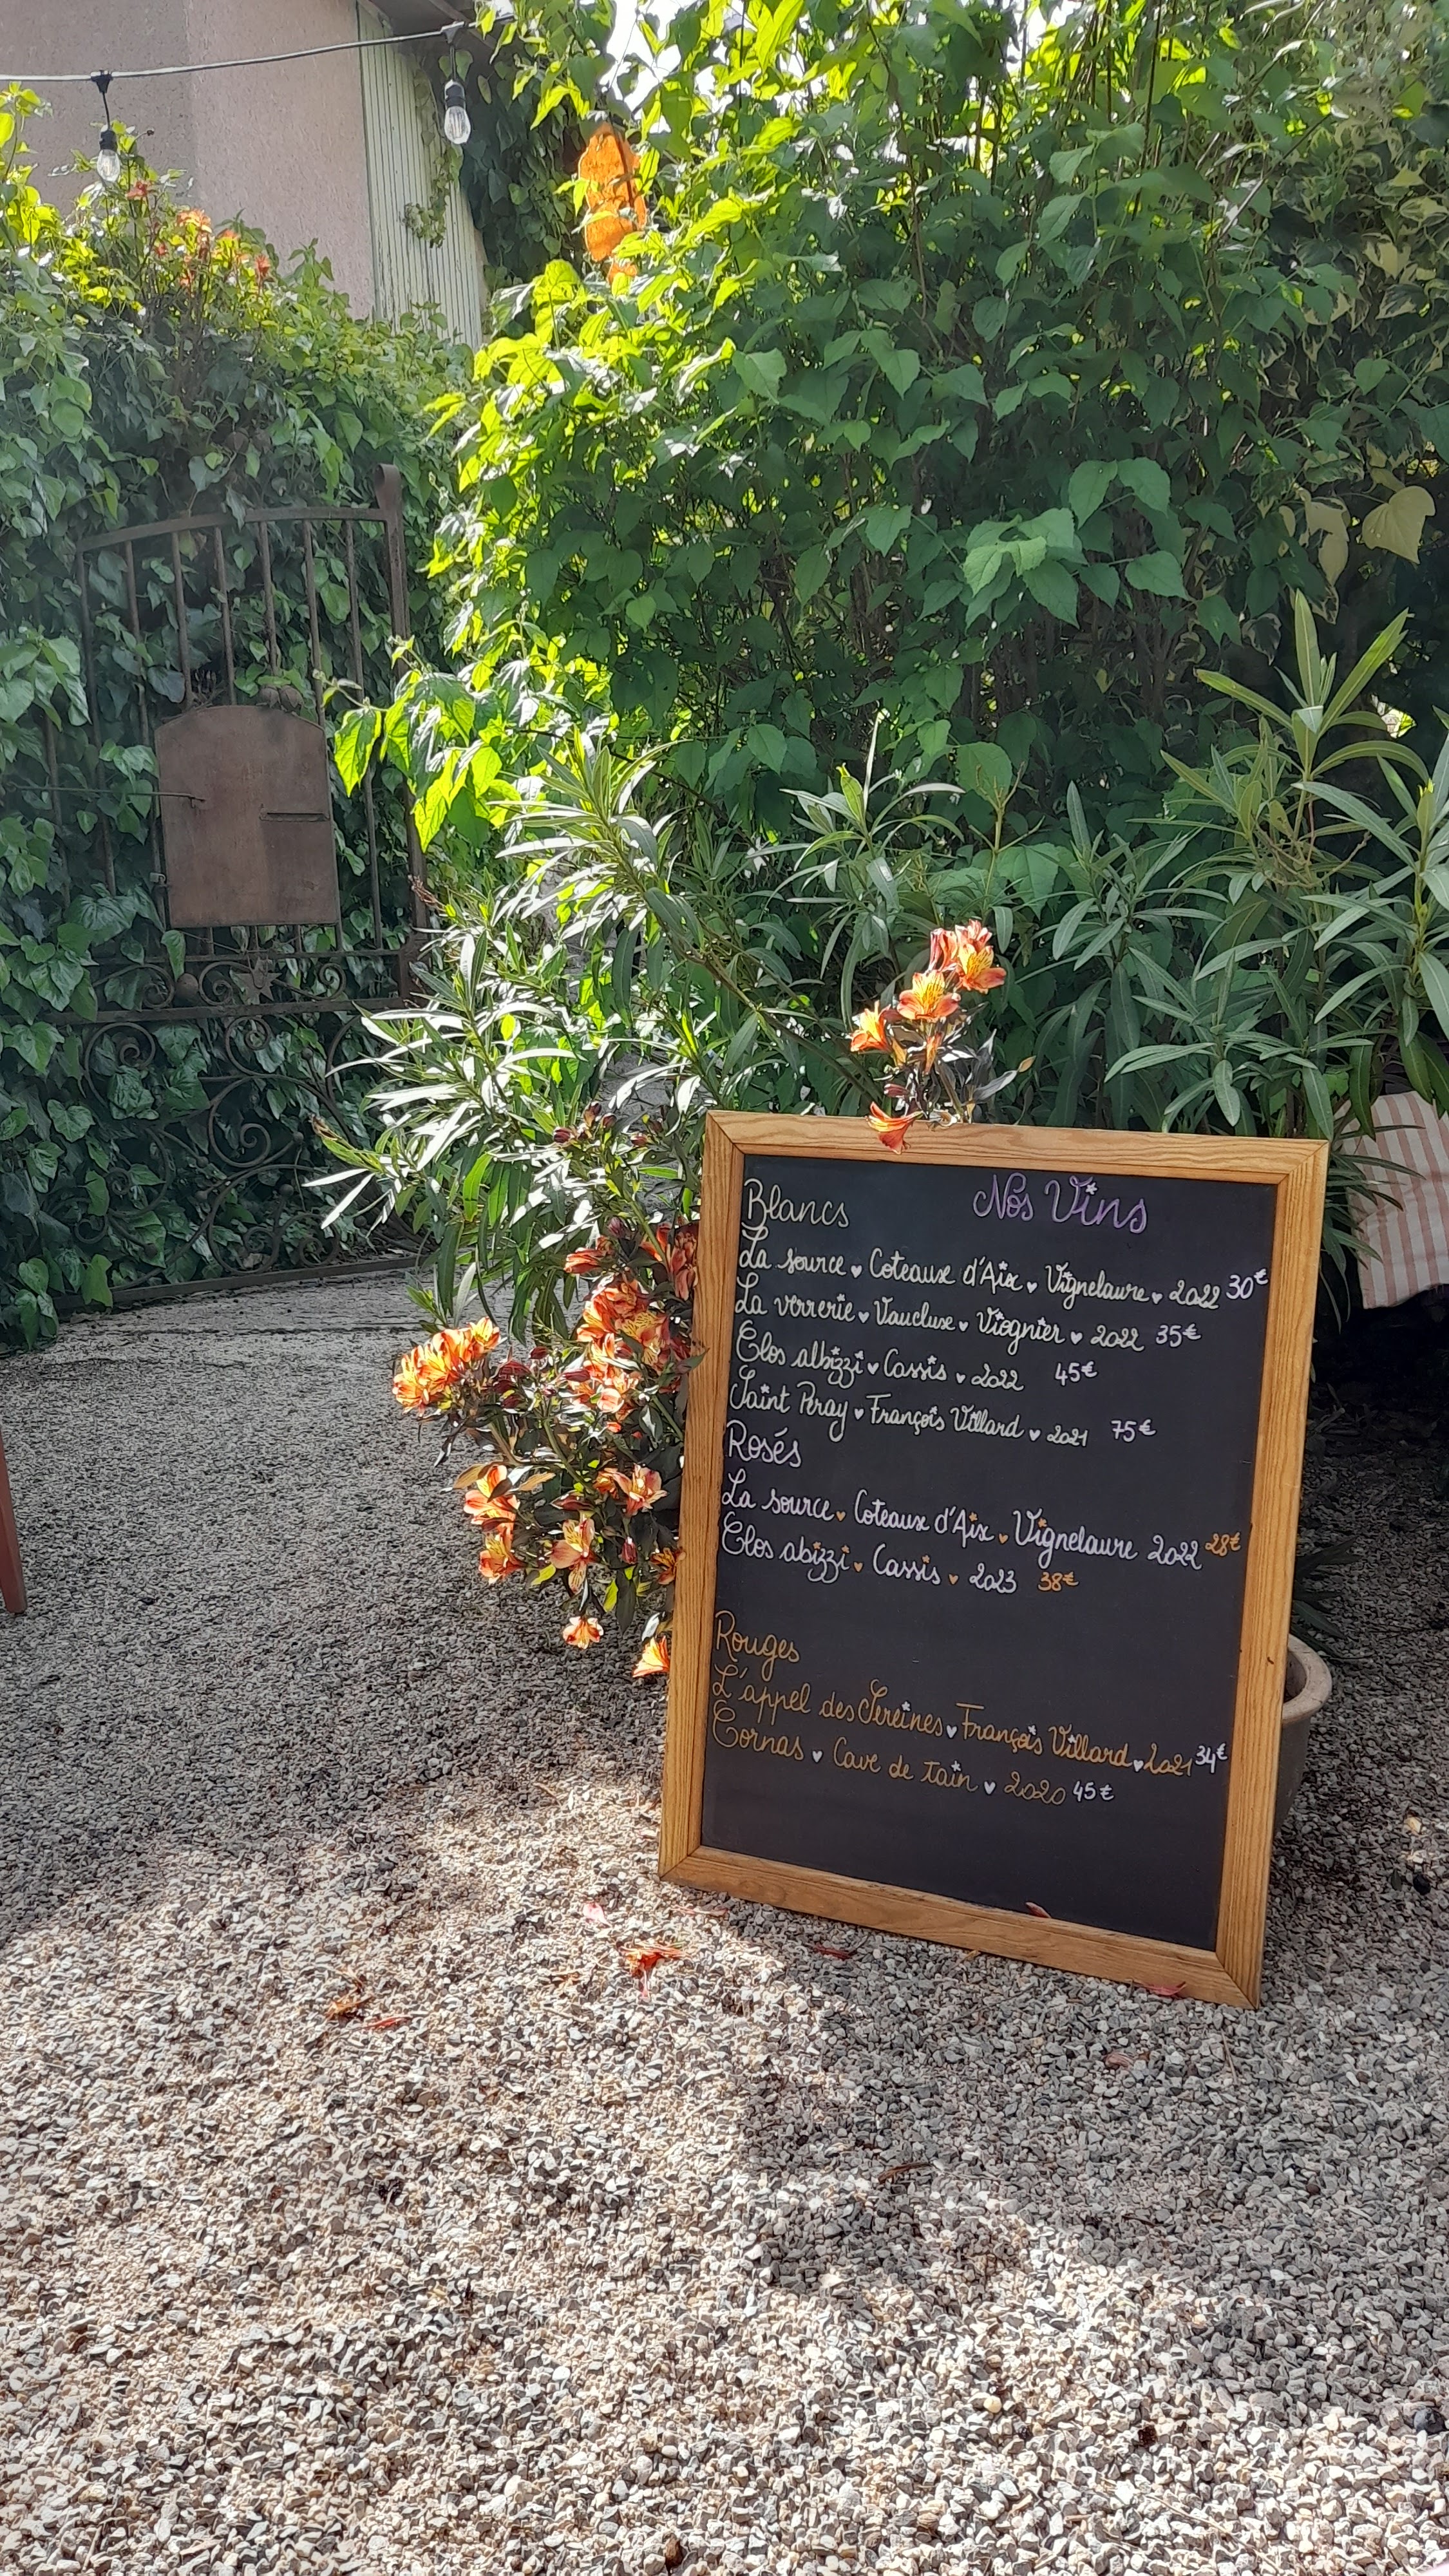 Nos Vins
Blancs
La source ♥ Coteaux d'Aix ♥ Vignelaure ♥ 2022 30€
La verrerie ♥ Vaucluse ♥ Viognier ♥ 2022 35€
Clos albizzi ♥ Cassis ♥ 2022 45€
Saint Peray ♥ François Villard ♥ 2021 75€
Rosés
La source ♥ Coteaux d'Aix ♥ Vignelaure 2022 28€
Clos abizzi ♥ Cassis ♥ 2023 38€
Rouges
L'appel des Sereines ♥ François Villard ♥ 2021 34€
Cornas ♥ Cave de tain ♥ 2020 45€